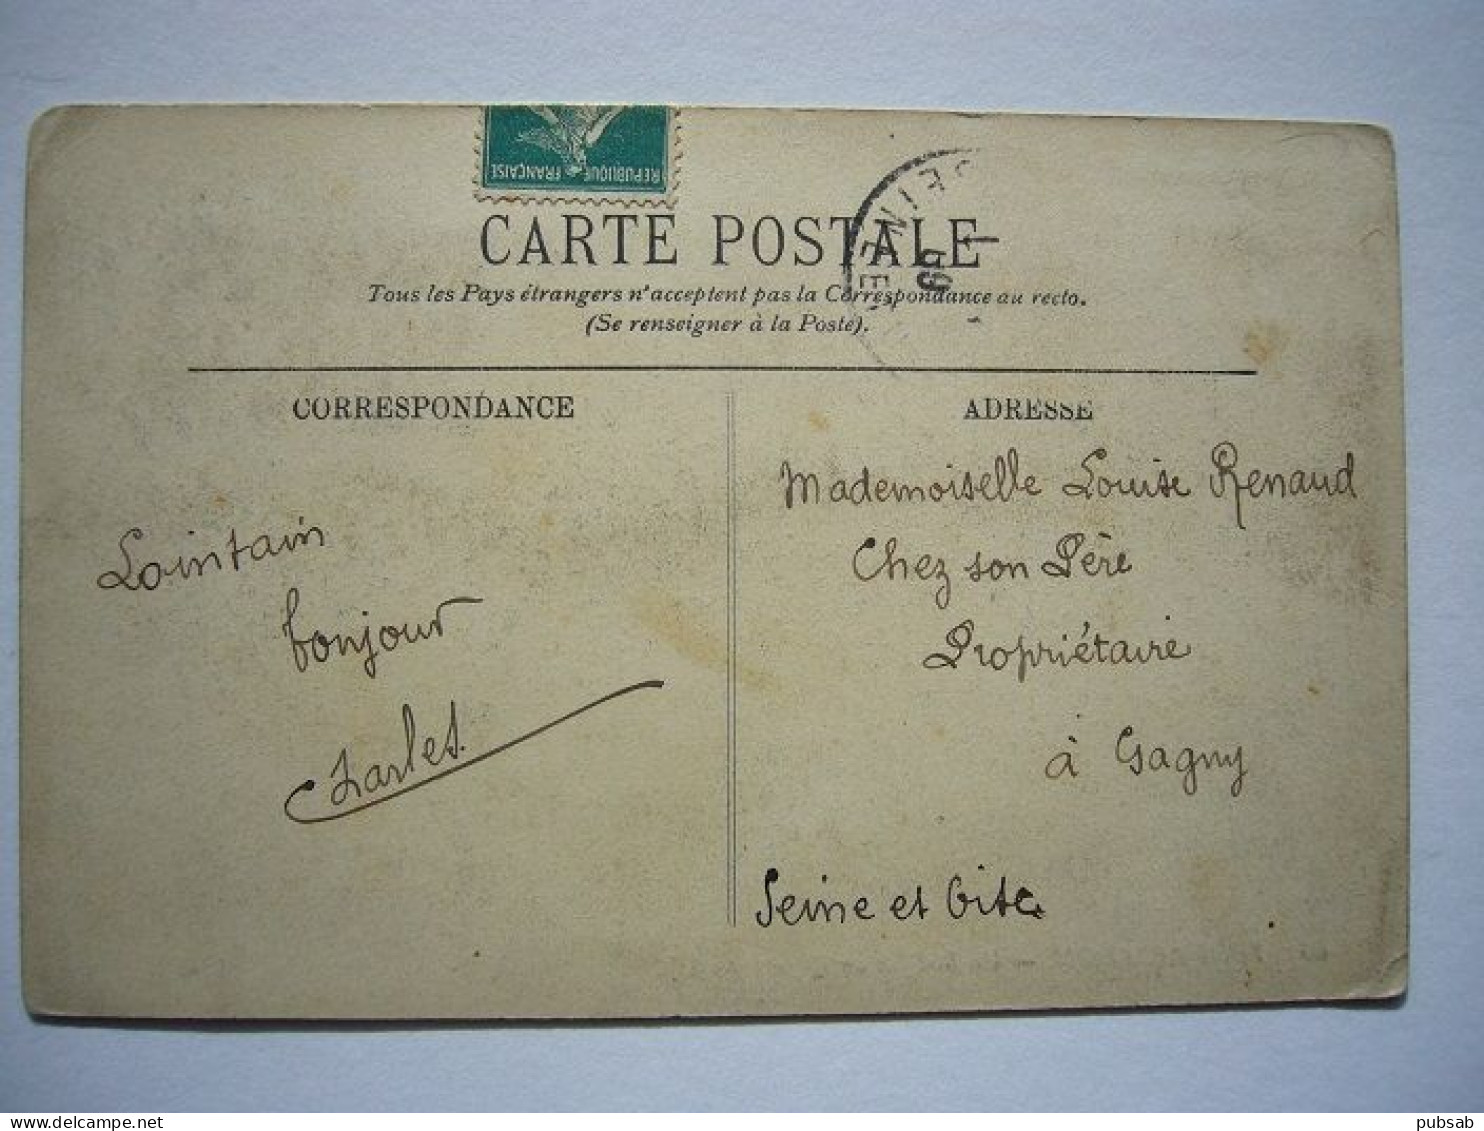 REPUBLIQUE FRANÇAISE
SEINE
CARTE POSTALE
Tous les Pays étrangers n'acceptent pas la Correspondance au recto.
(Se renseigner à la Poste).
CORRESPONDANCE
Lointain
bonjour
Charles.
ADRESSE
Mademoiselle Louise Renaud
Chez son Père
Propriétaire
à Gagny
Seine et Oise
pubsab